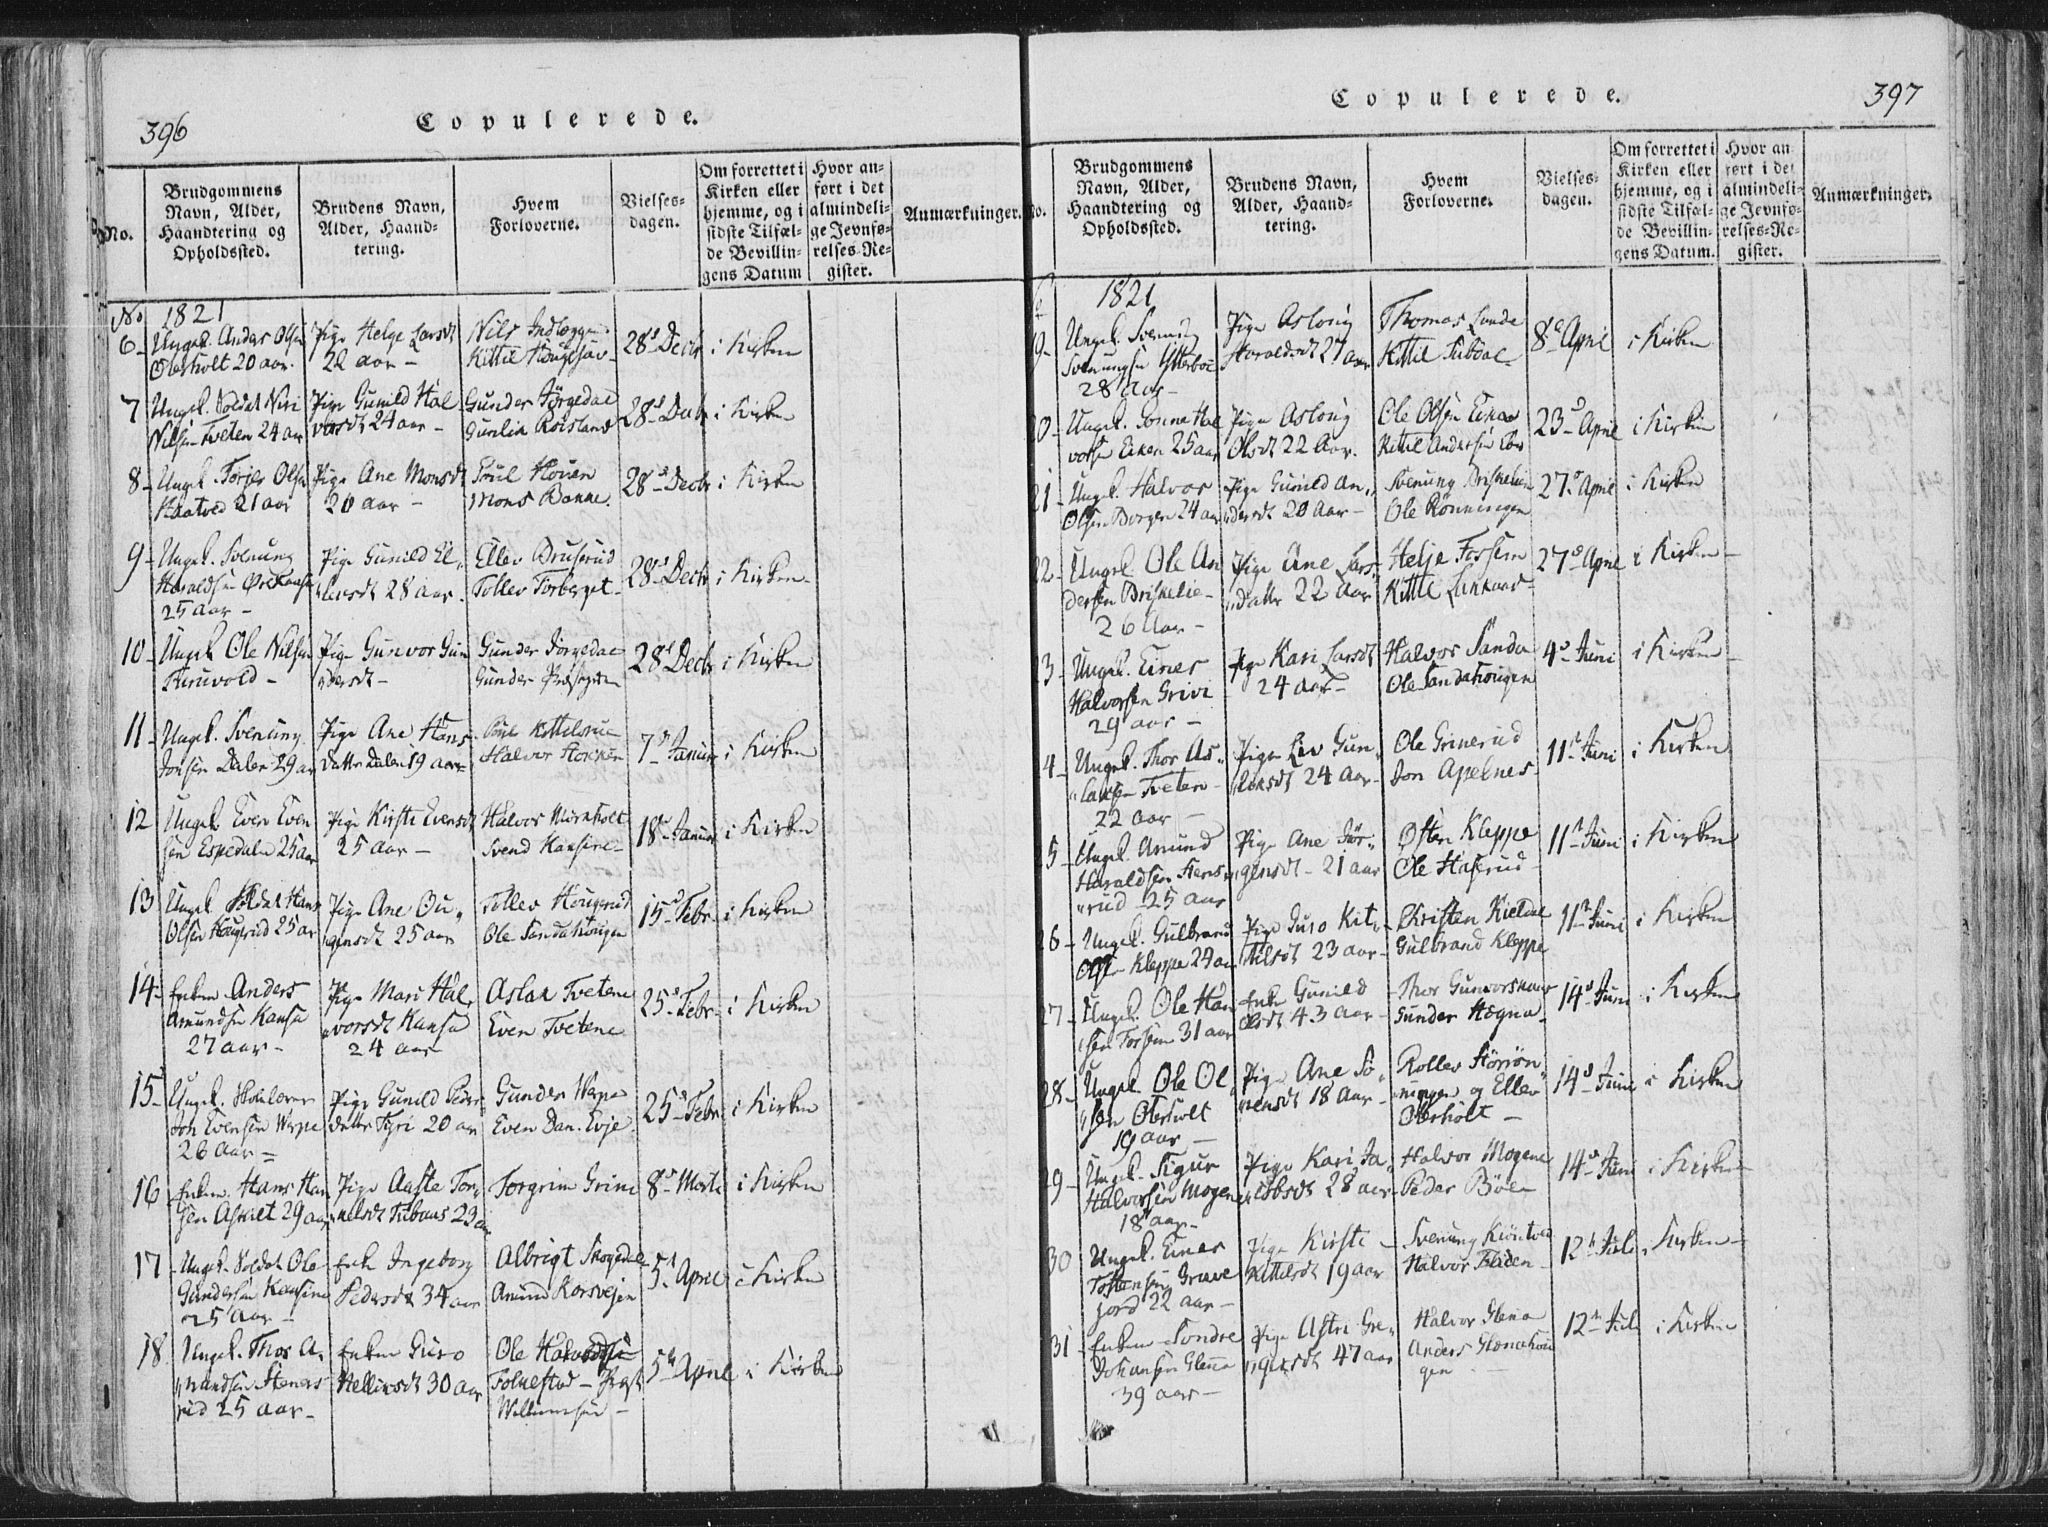 396
Copulerede.
No.
Brudgommens Navn, Alder, Haandtering og Opholdssted.
Brudens Navn, Alder, Haandtering.
Hvem Forloverne.
Vielsesdagen.
Om forrettet i Kirken eller hjemme, og i sidste Tilfælde Bevillingens Datum
Hvor anført i det almindelige Jevnførelses-Register.
Anmærkninger.
No 1821
6 Ungk. Anders Olsen
Olesholt 20 aar.
Pige Helge Larsdt
22 aar
Nils
Kittil
28d Decbr
i Kirken
7 Ungk. Soldat Niri
Nilsen Tveten 24 aar
Pige Gunild Hal
vorsdt 24 aar
Gunder Jørgedal
Gunlik Roisland
28d Decbr
i Kirken
8 Ungk. Torjer Olsen
Haatved 21 aar
Pige Ane Monsdt
20 aar
Poul Houen
Mons Banne
28d Decbr
i Kirken
9 Ungk. Svenung
Haraldsen
25 aar
Pige Gunild El
lensdt 28 aar
Ellev Bruserud
Tollev Torberget
28d Decbr
i Kirken
10 Ungk. Ole Nilsen
Pige Gunvor Gun
dersdt
Gunder Jorgedal
Gunder
28d Decbr
i Kirken
11 Ungk. Svenung
Jonsen Dalen 29 aar
Pige Ane Hans
datter Dalen 19 aar
Halvor
7d Januar
i Kirken
12 Ungk. Even Even
sen Espedalen 25 aar
Pige Kirsti Evensdt
25 aar
Halvor
Svend Kaasine
18d Januar
i Kirken
13 Ungk. Soldat Hans
Olsen Haugerud 25 aar
Pige Ane Ou
gensdt 25 aar
Tollev Hougerud
Ole Sandahougen
15d Febr.
i Kirken
14 Enkem. Anders
Amundsen Kaasa
27 aar
Pige Mari Hal
vorsdt Kaasa
24 aar
Aslak Tvetene
Even Tvetene
25d Febr.
i Kirken
15 Ungk. Skolelærer
Jon Evensen Verpe
26 aar
Pige Gunild Peders
datter Tyri 20 aar
Gunder Verpe
Even Dan. Evje
25d Febr.
i Kirken
16 Enkem. Hans Han
sen Askilt 29 aar
Pige Aaste Tor
kelsdt 23 aar
Torgrim Grini
8d Marts
i Kirken
17 Ungk. Soldat Ole
Gundersen Kaasine
25 aar
Enk Ingeborg
Pedersdt 34 aar
Albrigt Skogedal
Amund Korsvejen
5t April
i Kirken
18 Ungk. Thor A
mundsen Steners
rud 25 aar
Enken Guro
Hellixsdt 30 aar
Ole Halvordsen
Folkestad
Willumsen
5te April
i Kirken
Copulerede.
397
No.
Brudgommens Navn, Alder, Haandtering og Opholdssted.
Brudens Navn, Alder, Haandtering.
Hvem Forloverne.
Vielsesdagen.
Om forrettet i Kirken eller hjemme, og i sidste Tilfælde Bevillingens Datum.
Hvor anført i det almindelige Jevnførelses-Register.
Anmærkninger.
1821
19 Ungk. Svenung
Svenungsen Ytterbøe
28 Aar
Pige Asloug
Haraldsdt 27 aar
Thomas Lunde
Kittil Tubdal
8d April
i Kirken
20 Ungk. Sonne Hal
vorsen Eken 25 aar
Pige Asloug
Olsdt 22 Aar.
Ole Olsen Eikaas
Kittil Andersen
23d April
i Kirken
21 Ungk. Halvor
Olsen Borgen 24 aar
Pige Gunild An
dersdt 20 Aar
Svenung Briskelie
Ole Rønningen
27d April
i Kirken
22 Ungk. Ole An
dersen Briskelie
26 Aar
Pige Ane Lars
datter 22 Aar
Helje Fossem
Kittil Lunkaas
27d April
i Kirken
3 Ungk. Einer
Halvorsen Grivi
29 aar
Pige Kari Larsdt
24 aar
Halvor Sanda
Ole Sandahougen
4d Juni
i Kirken
4 Ungk. Thor As
laksen Tveten
22 aar
Pige Liv Gun
leksdt 24 Aar
Ole Grinerud
Jon Apelnes
11d Juni
i Kirken
5 Ungk. Amund
Haraldsen Steners
rud 25 aar
Pige Ane Jør
gensdt 21 aar
Østen Kleppe
Ole Haserud
11d Juni
i Kirken
26 Ungk. Gulbrand
Olsen Kleppe 24 aar
Pige Guro Kit
tilsdt 23 aar
Christen Kieldal
Gulbrand Kleppe
11d Juni
i Kirken
27 Ungk. Ole Han
sen Fossem 31 aar
Enke Gunild
Olsdt 43 aar
Thor Gunvorsnaas
Gunder Hægna
14d Juni
i Kirken
28 Ungk. Ole Ol
sen Olesholt
19 aar
Pige Ane Sø
rensdt 18 Aar
Rollev Storøn
ningen og Ellev
Olesholt
14d Juni
i Kirken
29 Ungk. Sigur
Halvorsen Mogene
18 aar
Pige Kari Ja
cobsdt 28 aar
Halvor Mogene
Peder Böen
14d Juni
i Kirken
30 Ungk. Einer
Tostensen Grave
jord 22 aar
Pige Kirsti
Kittilsdt 19 aar
Svenung Kiöntved
Halvor
12te Juli
i Kirken
31 Enkem. Sondre
Johansen Glena
39 aar
Pige Astri Gre
gersdt 47 aar
Halvor Glena
Anders Glenahou
gen
12te Juli
i Kirken